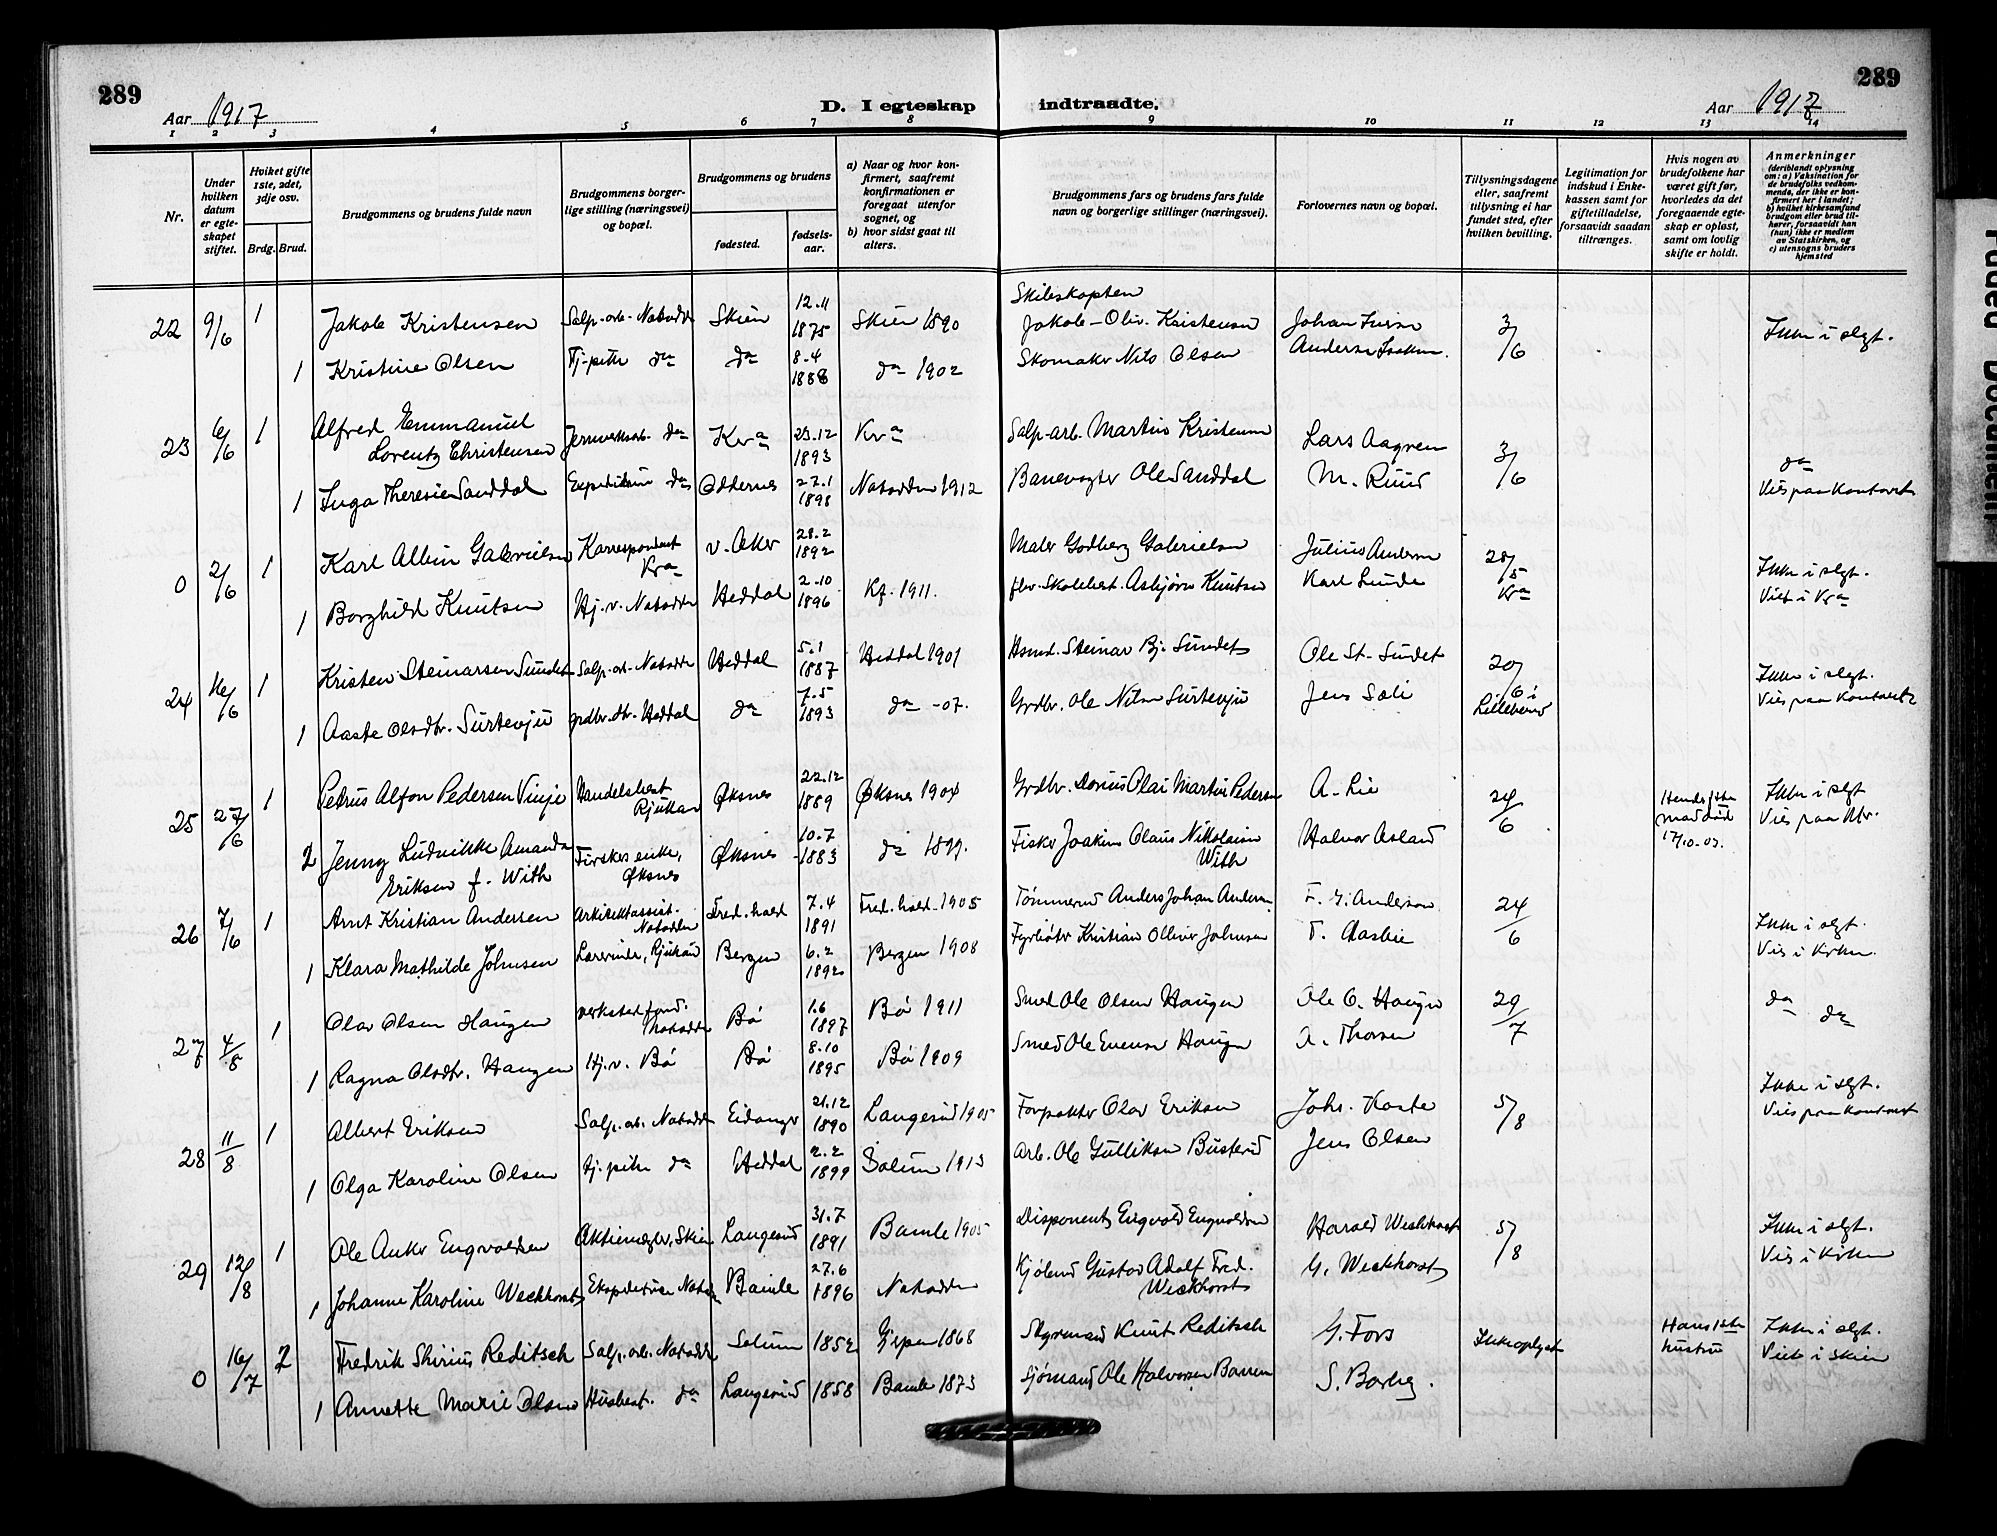 289
289
Aar 1917
D. I egteskap indtraadte.
Aar 1917
1 2 3 4 5 6 7 8 9 10 11 12 13 14
Nr.
Under hvilken datum er egteskapet stiftet.
Hviket gifte 1ste, 2det, 3dje osv.
Brdg. Brud.
Brudgommens og brudens fulde navn
Brudgommens borgerlige stilling (næringsvei) og bopæl.
Brudgommens og brudens
fødested.
fødselsaar.
a) Naar og hvor konfirmert, saafremt konfirmationen er foregaat utenfor sognet, og
b) hvor sidst gaat til alters.
Brudgommens fars og brudens fars fulde navn og borgerlige stillinger (næringsvei).
Forlovernes navn og bopæl.
Tillysningsdagene eller, saafremt tillysning ei har fundet sted, efter hvilken bevilling.
Legitimation for indskud i Enkekassen samt for giftetilladelse, forsaavidt saadan tiltrænges.
Hvis nogen av brudefolkene har været gift før, hvorledes da det foregaaende egteskap er opløst, samt om lovlig skifte er holdt.
Anmerkninger (deriblandt oplysning om: a) Vaksination for de brudefolks vedkommende, der ikke er konfirmert her i landet; b) hvilket kirkesamfund brudgom eller brud tilhører, forsaavidt han (hun) ikke er medlem av Statskirken, og c) utensogns bruders hjemsted
22 9/6 1 Jakob Kristensen Salp. arb. Notodden Skien 12.11 1875 Skien 1890 Jakob Oliv. Kristensen Johan 3/6 Ikke i slgt.
1 Kristine Olsen Tj.pike do do 8.4 1888 do 1902 Skomaker Nils Olsen
23 6/6 1 Alfred Emmanuel Lorentz Christensen Jernverksarb. do Kra 23.12 1893 Kra Salp. arb. Martin Kristensen Lars Aagren 3/6 do
1 Inga Theresie Sanddal do Oddernes 27.1 1898 Notodden 1912 Banevogter Ole Sanddal M. Ruud Vies paa Kontoret
0 2/6 1 Karl Albin Gabrielsen Korrespondent Kra v. Aker 28.2 1892 Maler Godberg Gabrielsen Julius Andersen 28/5 Kra Ikke i slgt.
1 Borghild Knutsen Hj. v. Notodden Heddal 2.10 1896 Kf. 1911. Asbjørn Knutsen Karl Lunde Viet i Kra
24 16/6 1 Kristen Steinarsen Sundet Salp. arb. Notodden Heddal 5.1 1887 Heddal 1901 Husmd. Steinar Bj. Sundet Ole St. Sundet 20/6 i Lilleherred Ikke i slgt.
1 Aaste Olsdtr. Surtevju grdbr. dtr. Heddal do 7.5 1893 do -07. Grdbr. Ole Nilsen Surtevju Jens Sæli Vies paa Kontoret
25 27/6 1 Petrus Alfon Pedersen Vinje Handelsbest. Rjukan Øksnes 22.12 1889 Øksnes 1904 Grdbr. Dorius Olai Martin Pedersen A. Lie 24/6 Hendes 1ste mand død 17/10-07. Ikke i slgt
2 Jenny Ludvikke Amanda Eriksen f. With Fiskers enke, Øksnes Øksnes 10.7 1883 do 1899. Fisker Joakim Olaus Nikolaisen With Halvor Asland
26 7/6 1 Arnt Kristian Andersen Arkitektassist. Notodden Fred.hald 7.4 1891 Fred.hald 1905 Tømmermd Anders Johan Andersen F. G. Anderson 24/6 Ikke i slgt.
1 Klara Mathilde Johnsen Lærerinde, Rjukan Bergen 6.2 1892 Bergen 1908 Fyrbøter Kristian Olliver Johnsen T. Aasbie Vies i Kirken.
27 4/8 1 Olav Olsen Haugen Notodden Bø 1.6 1897 Bø 1911 Smed Ole Olsen Haugen Ole O. Haugen 29/7 do do
1 Ragna Olsdtr. Haugen Hj. v. Bø Bø 8.10 1895 Bø 1909 Smed Ole Evensen Haugen A. Thorsen
28 11/8 1 Albert Eriksen Salp. arb. Notodden Eidanger 21.12 1890 Langesund 1905 Forpakter Olav Eriksen Johs. Kaste 5/8 Ikke i slgt.
1 Olga Karoline Olsen tj.pike do Heddal 2.2 1899 Solum 1913 Arb. Ole Gulliksen Busterud Jens Olsen Vies paa Kontoret
29 12/8 1 Ole Anker Engvoldsen Aktiemegler, Skien Langesund 31.7 1891 Bamle 1905 Disponent Engvold Engvoldsen Harald Weckhorst 5/8 Ikke i slgt.
1 Johanne Karoline Weckhorst Ekspeditrice Notodden Bamle 27.6 1896 Notodden Kjølmd Gustav Adolf Fred. Weckhorst G. Weckhorst Vies i Kirken
0 16/7 2 Fredrik Skirius Reditsch Salp. arb. Notodden Solum 1852 Gjerpen 1868 Styrmand Knut Reditsch G. Fors Ikke oplyst Hans 1ste hustru Ikke i slgt.
1 Annette Marie Olsen Husbest. do Langesund 1858 Bamle 1873 Sjømand Ole Halvorsen S. Borberg. Viet i Skien